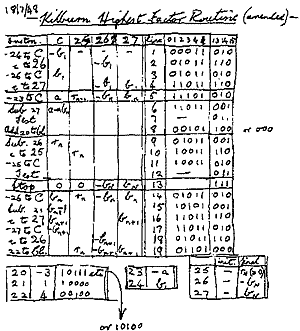 18/7/48 Kilburn Highest Factor Routine (amended)-
instn. C 25 26 27 line 0 1 2 3 4 13 14 15
-24 to C -b₁ 1 00011 010
c to 26 -b₁ 2 01011 110
-26 to C b₁ 3 01011 010
c to 27 -b₁ b₁ 4 11011 110
-23 to C a 5 11101 010
Sub. 27 a-bₙ 6 11011 001
Test 7 — 011
Add 20 to Cl. 8 00101 100 or 000
Sub. 26 9 01011 001
c to 25 10 10011 110
-25 to C 11 10011 010
Test 12 — 011
Stop 0 0 -bₙ bₙ 13 111
-26 to C 14 01011 010
Sub. 21 15 10101 001
c to 27 16 11011 110
-27 to C 17 11011 010
c to 26 18 01011 110
22 to Cl. 19 01101 000
init. final
20 -3 10111 etc
21 1 10000
22 4 00100
23 -a
24 b₁
25 —
26 — -bₙ
27 — bₙ
or 10100